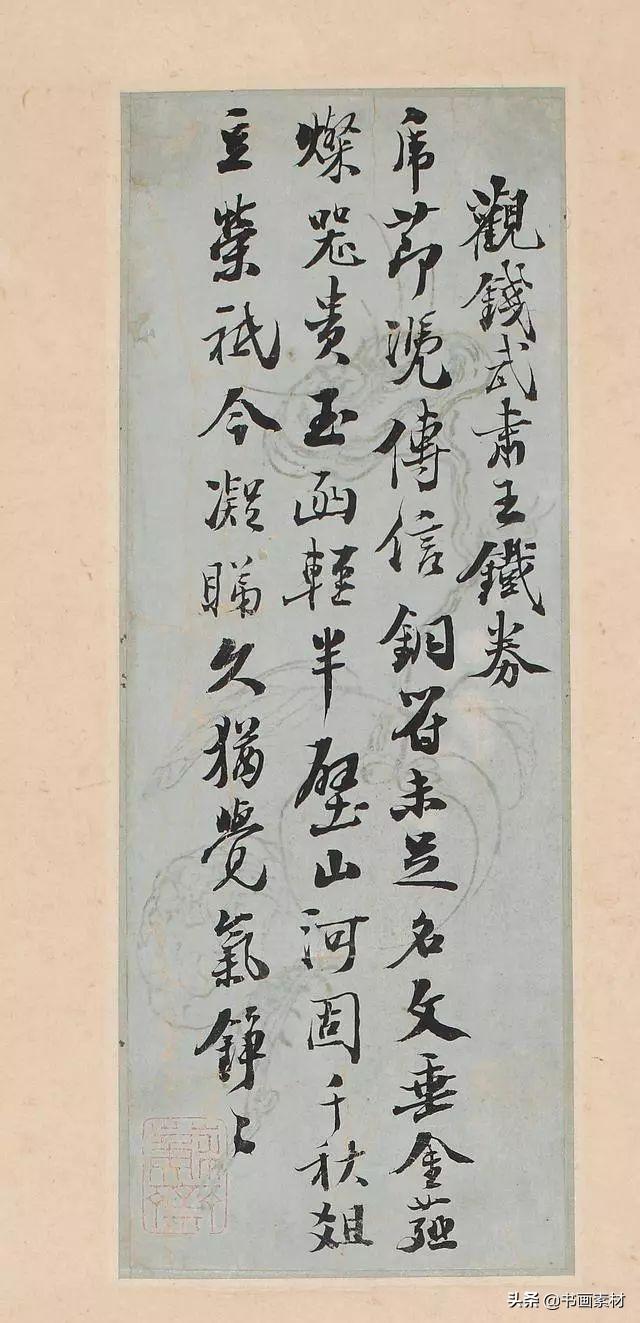 觀錢武肅王鐵券
虎節凴傳信銅符未足名文垂金薤
燦器貴玉函輕半壁山河固千秋俎
豆榮祗今凝睇久猶覺氣錚〻
头条 @书画素材